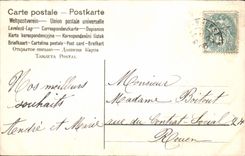 Carte postale - Postkarte
Weltpostverein - Union postale universelle
Levelező-Lap - Correspondenzkarte - Dopisnice
Karta korespondencyjna - Korespondenční lístek
Briefkaart - Cartolina postale - Post card - Brefkort
Открытое письмо - Дописна Карта
Tarjeta Postal
Nos meilleurs
souhaits
André et Marie
Monsieur
Madame
rue du Contrat-Social
Rouen